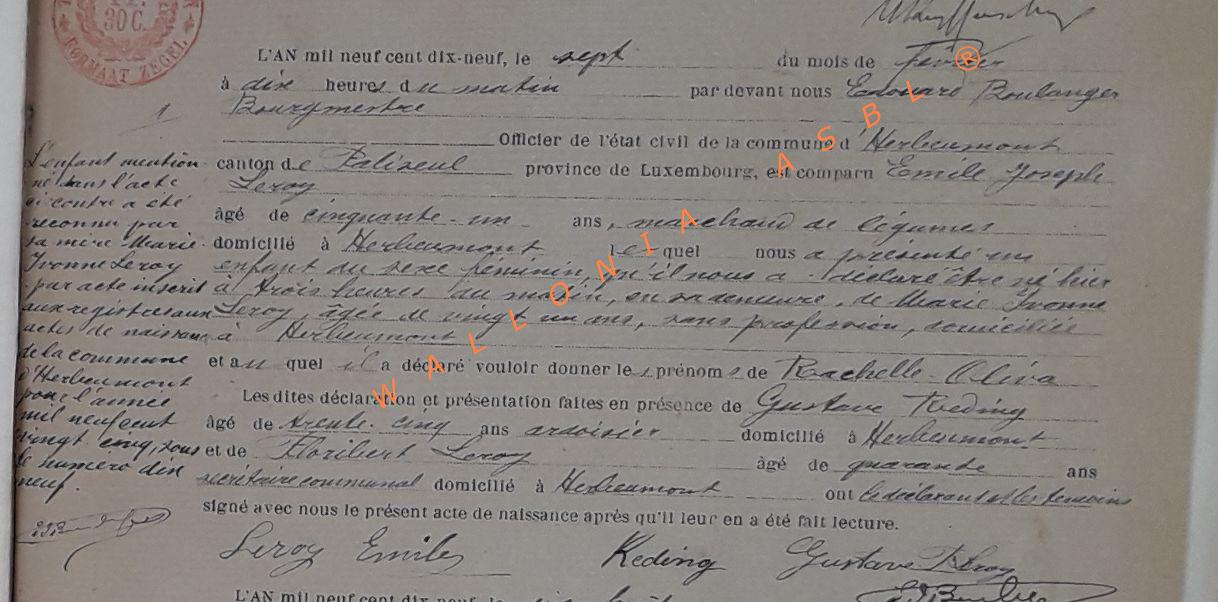 30C.
FORMAAT ZEGEL
L'AN mil neuf cent dix-neuf, le sept du mois de Février
à dix heures du matin par devant nous Edouard Boulanger
Bourgmestre
Officier de l'état civil de la commune d'Herbeumont
canton de Paliseul province de Luxembourg, est comparu Emile Joseph
Leroy
âgé de cinquante-un ans, marchand de légumes
domicilié à Herbeumont lequel nous a présenté un
enfant du sexe féminin, qu'il nous a déclaré être né hier
à trois heures du matin, en sa demeure, de Marie Yvonne
Leroy, âgée de vingt un ans, sans profession, domiciliée
à Herbeumont
et auquel il a déclaré vouloir donner les prénoms de Rachelle Oliva
Les dites déclaration et présentation faites en présence de Gustave Reding
âgé de trente-cinq ans ardoisier domicilié à Herbeumont
et de Floribert Leroy âgé de quarante ans
secrétaire communal domicilié à Herbeumont ont le déclarant et les témoins
signé avec nous le présent acte de naissance après qu'il leur en a été fait lecture.
Leroy Emile Reding Gustave Leroy
L'AN mil neuf cent dix-neuf, le
1
L'enfant mention-
né dans l'acte
ci contre a été
reconnu par
sa mère Marie-
Yvonne Leroy
par acte inscrit
aux registres aux
actes de naissance
de la commune
d'Herbeumont
pour l'année
mil neuf cent
vingt cinq, sous
le numéro dix
neuf.
WALLONIA ASBL ®